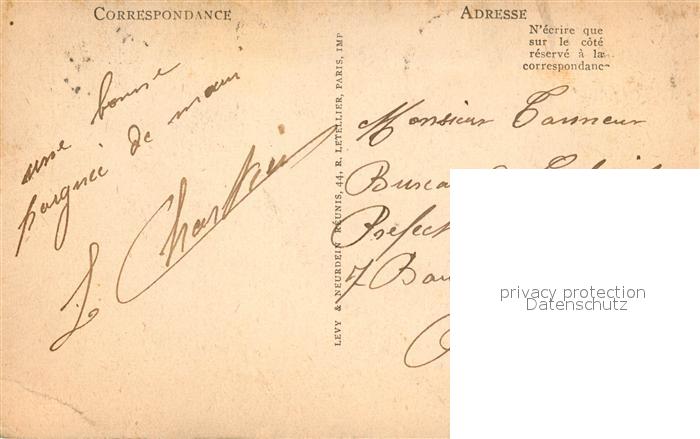 CORRESPONDANCE
ADRESSE
N'écrire que
sur le côté
réservé à la
correspondance
une bonne
poignée de main
LEVY & NEURDEIN RÉUNIS, 44, R. LETELLIER, PARIS, IMP
Monsieur Tanneur
Préfect
7
privacy protection
Datenschutz